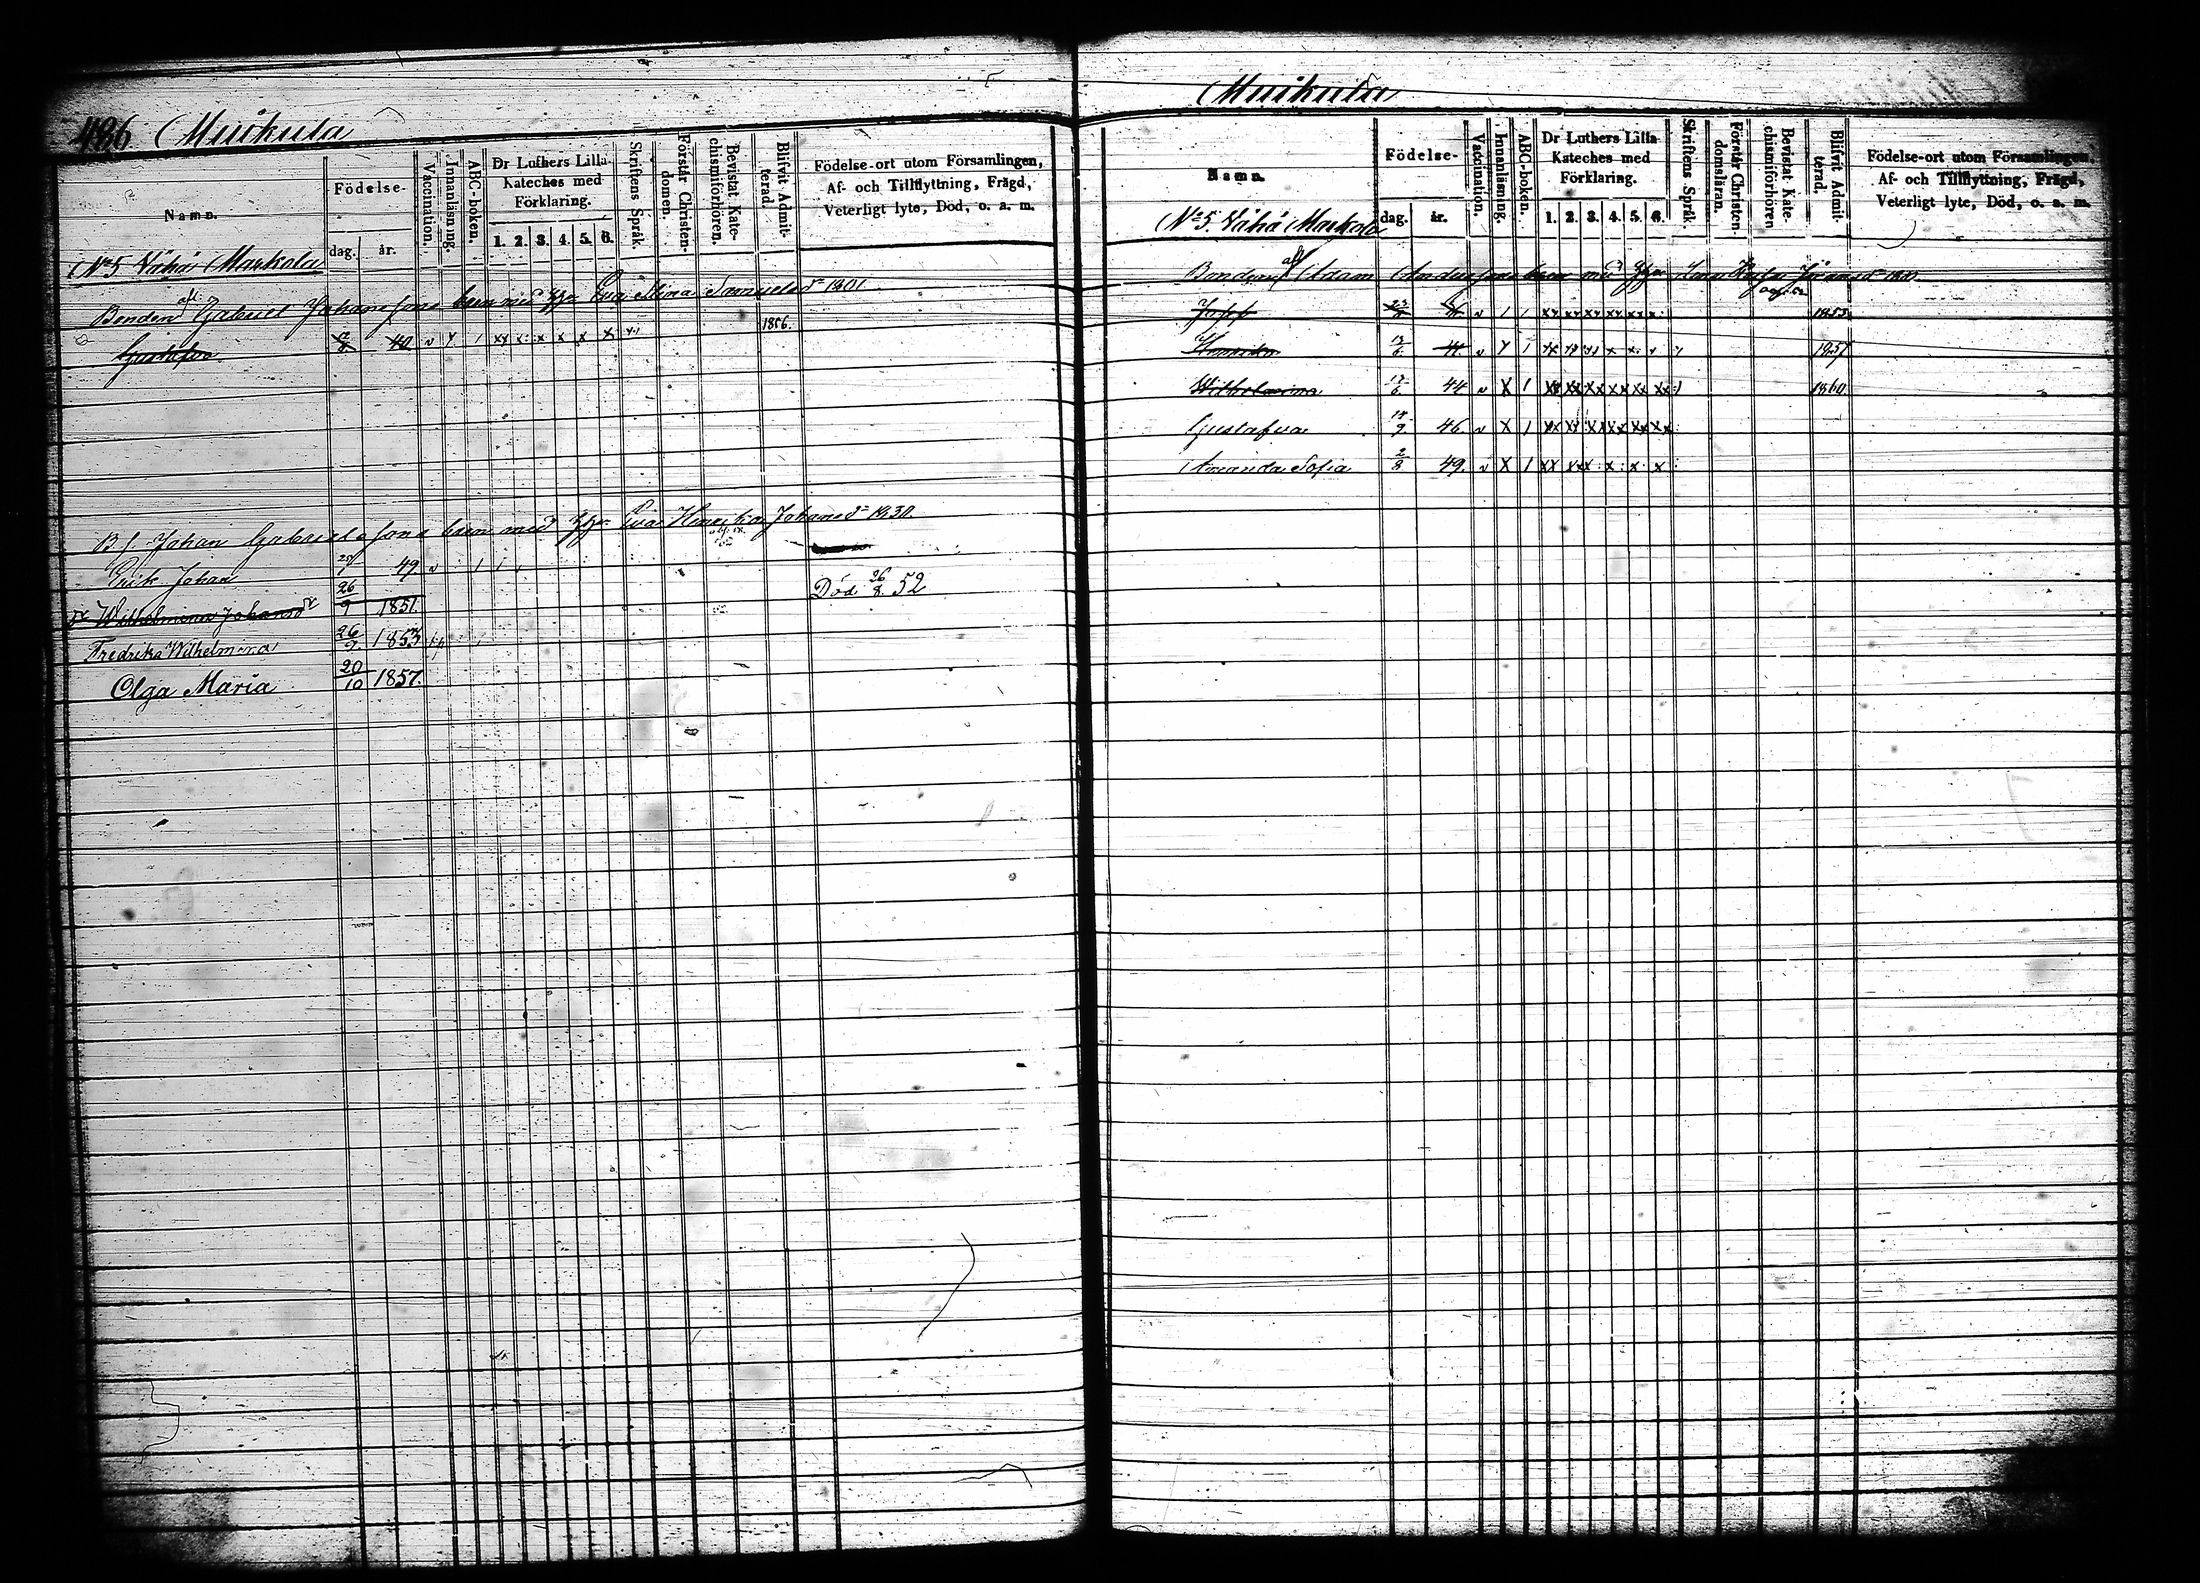 486 Muikula
Namn.
Födelse-
dag. år.
Vaccination.
Innanläsning.
ABC-boken.
Dr Luthers Lilla Kateches med Förklaring.
1. 2. 3. 4. 5. 6.
Skriftens Språk.
Förstår Christendomen.
Bevistat Katechismiförhören.
Blifvit Admitterad.
Födelse-ort utom Församlingen,
Af- och Tillflyttning, Frägd,
Veterligt lyte, Död, o. a. m.
No 5 Vähä Markola
Bonden afl. Gabriel Johanssons barn med Eva Stina Samuelsdr 1801.
Gustafva 40 v 1856.
B. s. Johan Gabrielssons barn med Eva Henrika Johansdr 1830.
Erik Johan 49 v
Wilhelmina Johansdr 26/9 1851. Död 26/8 52
Fredrika Wilhelmina 26/9. 1853
Olga Maria 20/10 1857.
Muikula
Namn.
Födelse-
dag. år.
Vaccination.
Innanläsning.
ABC-boken.
Dr Luthers Lilla Kateches med Förklaring.
1. 2. 3. 4. 5. 6.
Skriftens Språk.
Förstår Christendomsläran.
Bevistat Katechismiförhören
Blifvit Admitterad.
Födelse-ort utom Församlingen,
Af- och Tillflyttning, Frägd,
Veterligt lyte, Död, o. a. m.
No 5. Vähä Markola
Bonden afl Adam Anderssons barn med
Josef v 1853.
Henrika v 1857
Wilhelmina 17/6 44. v X 1 1860.
Gustafva 14/9. 46. v X 1
Amanda Sofia 2/8 49. v X 1